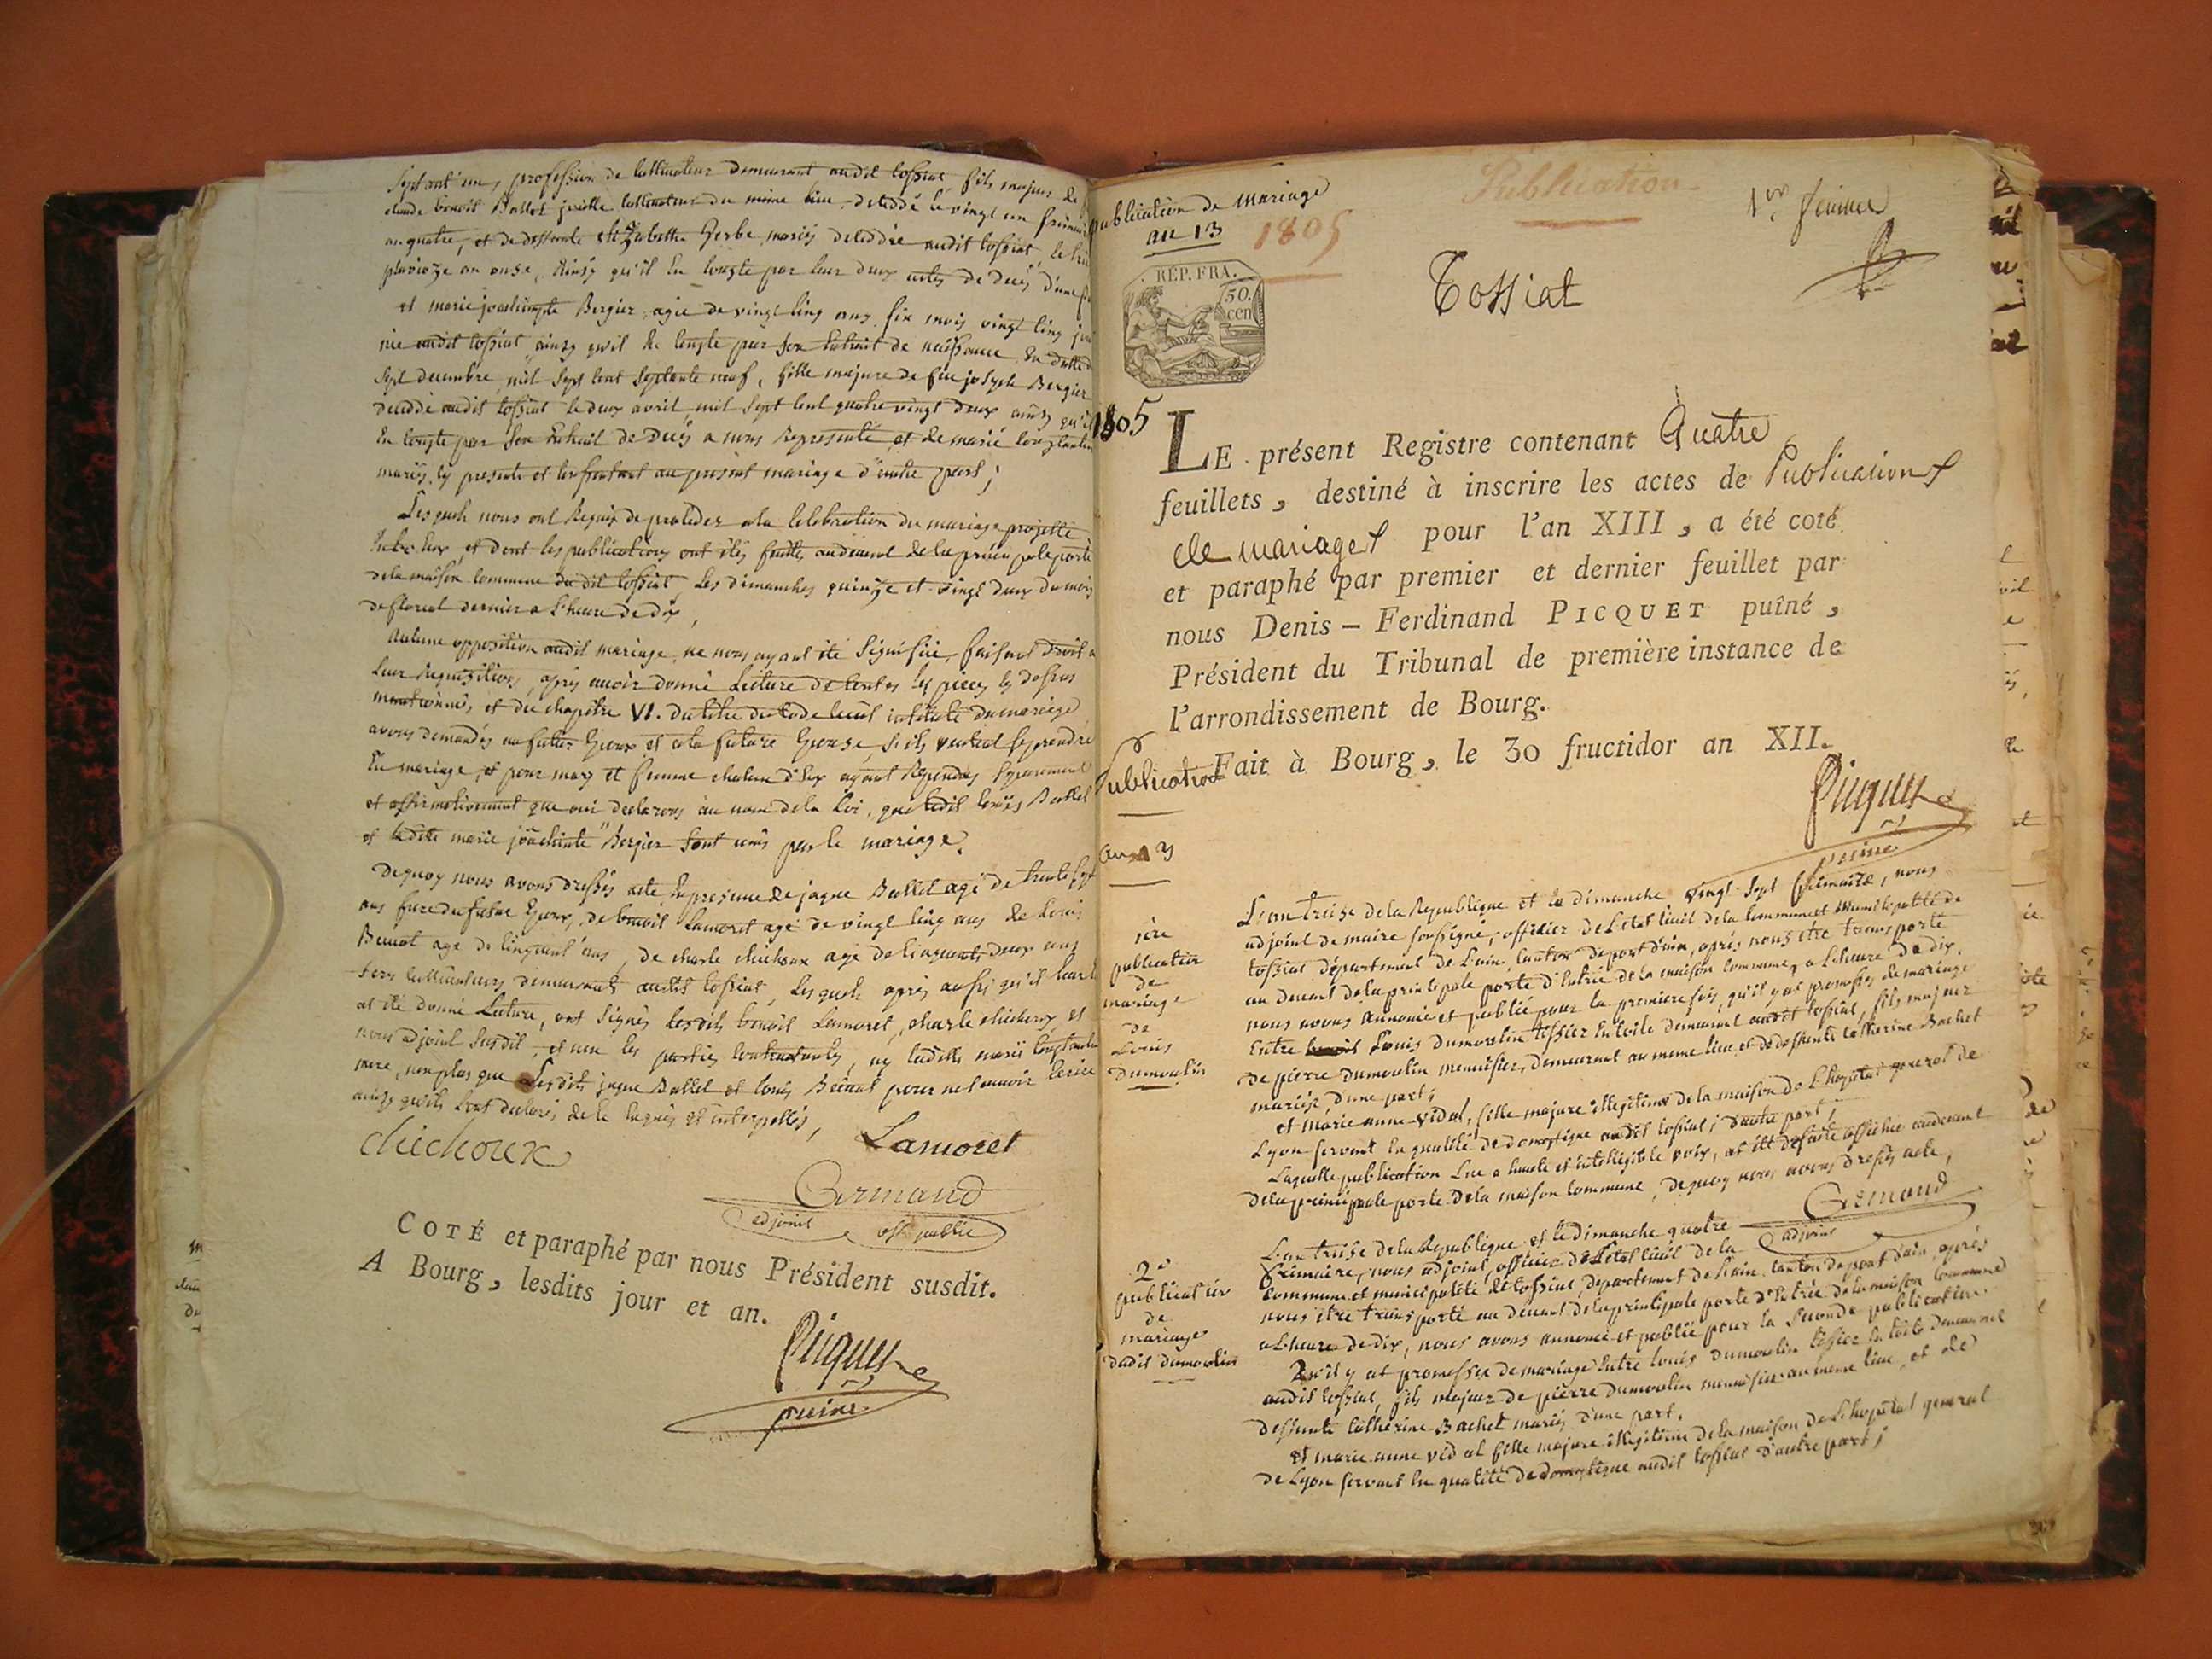 profession de cultivateur demeurant audit tossiat fils majeur de
claude benoit Ballet cultivateur du même lieu decedé le vingt un frimaire
an quatre, et de deffunte Elizabette Gerbe mariés decedée audit tossiat, le
pluvioze an onze, Ainsy qu'il En conste par leur deux actes de decés d'une part
et marie joachimpte Bergier agée de vingt cinq ans six mois vingt cinq
née audit tossiat ainsy qu'il En conste par son Extrait de naissance En datte
sept decembre mil sept cent septante neuf, fille majeure de feu joseph Bergier
decedé audit tossiat le deux avril mil sept cent quatre vingt deux ainsy qu'il
En conste par son Extrait de decés a nous Representé et de marie
mariés, cy presente et consentant au present mariage d'autre part;
Lesquels nous ont Requis de proceder a la celebration du mariage projetté
Entre Eux, et dont les publications ont étés faittes au devant de la principale porte
de la maison commune du dit tossiat les dimanches quinze et vingt deux du mois
de floreal dernier a l'heure de dix,
Aucune opposition audit mariage ne nous ayant été signifiée, faisant droit a
leur Requizition, aprés avoir donné Lecture de toutes les pieces cy dessus
mentionnés, et du chapitre VI. du titre du code civil intitulé du mariage
avons demandés au futur Epoux et a la future Epouse, s'ils veulent se prendre
En mariage, et pour mary et femme chacun d'Eux ayant Repondus separement
et affirmativement que oui declarons au nom de la Loi, que ledit Ballet
et laditte marie joachimte Bergier sont unis par le mariage.
De quoy nous avons dressés acte En presence de jaque Ballet agé de trente sept
ans frere du futur Epoux, de benoit Lamoret agé de vingt cinq ans de Louis
Benoit agé de cinquant'ans, de charle chichoux agé de cinquante deux ans
tous cultivateurs demeurant audit tossiat, Lesquels aprés aussi qu'il leur
at été donné Lecture, ont signés lesdits benoit Lamoret, charle chichoux et
nous adjoint susdit, et non les parties contractantes, ny laditte marie
mere, non plus que Lesdits jaque Ballet et Louis Benoit pour ne savoir Ecrire
ainsy qu'ils l'ont declaré, de ce Requis et interpellés,
chichoux Lamoret
Armand
adjoint off. public
COTÉ et paraphé par nous Président susdit.
A Bourg, lesdits jour et an.
Picquet
puîné
publication de mariage
an 13
1805
Publication
1er feuillet
Tossiat
REP. FRA.
50.
cen
1805
LE présent Registre contenant Quatre
feuillets, destiné à inscrire les actes de Publications
de mariages pour l'an XIII, a été coté
et paraphé par premier et dernier feuillet par
nous Denis – Ferdinand PICQUET puîné,
Président du Tribunal de première instance de
l'arrondissement de Bourg.
Fait à Bourg, le 30 fructidor an XII.
Picquet
puîné
Publication
an 13
1ère
publication
de
mariage
de
Louis
dumoulin
L'an treise de la Republique et le dimanche vingt sept frimaire, nous
adjoint de maire soussigné, officier de L'etat civil de la commune et municipalité de
tossiat département de L'ain, canton de pont d'ain, aprés nous etre transporté
au devant de la principale porte d'Entrée de la maison commune, a L'heure de dix,
nous avons annoncé et publié pour la premiere fois, qu'il y at promesses de mariage
Entre Louis Dumoulin tissier En toile demeurant audit tossiat, fils majeur
de pierre Dumoulin menuisier, demeurant au meme lieu, et de deffunte catherine Bachet
mariés, d'une part;
et Marie anne vidal, fille majeure illegitime de la maison de L'hopital general de
Lyon servant En qualité de domestique audit tossiat; d'autre part;
Laquelle publication Lue a haute et intelligible voix, at été de suite affichée au devant
de la principale porte de la maison commune, de quoy nous avons dressés acte,
Armand
adjoint
2e
publication
de
mariage
dudit dumoulin
L'an treise de la Republique et le dimanche quatre
frimaire, nous adjoint, officier de L'etat civil de la
commune et municipalité de tossiat, departement de L'ain, canton de pont d'ain aprés
nous etre transporté au devant de la principale porte d'Entrée de la maison commune
a L'heure de dix, nous avons annoncé et publié pour la seconde publication
Qu'il y at promesses de mariage Entre Louis Dumoulin tissier En toile demeurant
audit tossiat, fils majeur de pierre Dumoulin menuisier au meme lieu, et de
deffunte catherine Bachet mariés d'une part.
et marie anne vidal fille majeure illegitime de la maison de L'hopital general
de Lyon servant En qualité de domestique audit tossiat d'autre part;